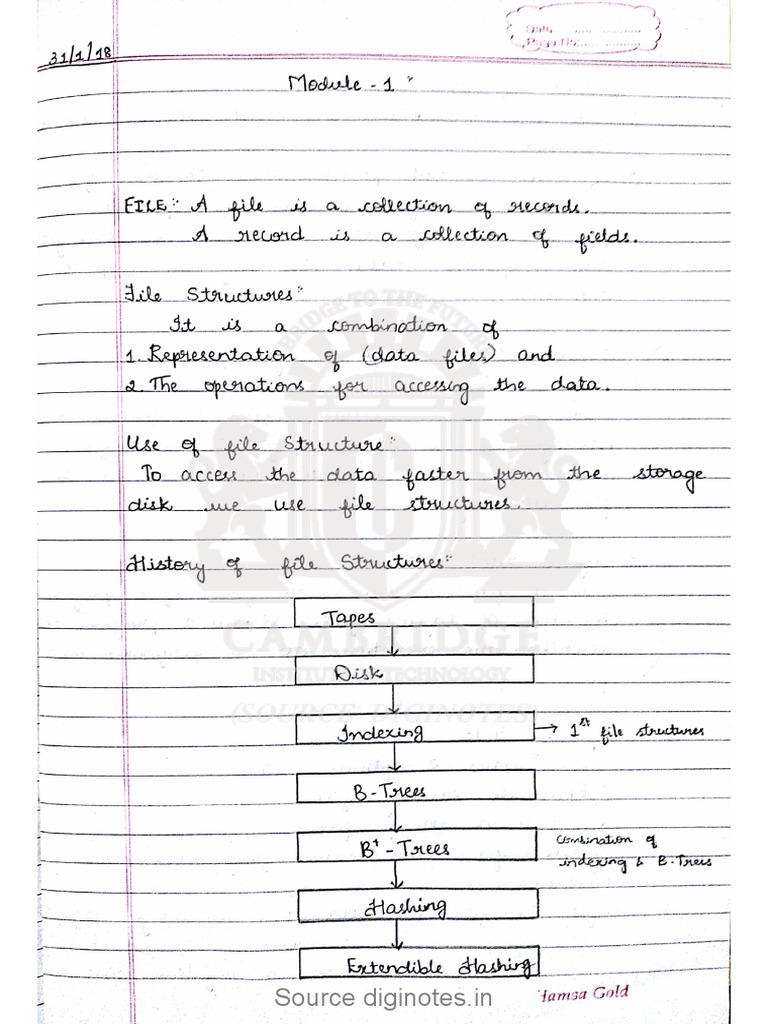 Date
Page No:
31/1/18
Module - 1 :
FILE: A file is a collection of records.
A record is a collection of fields.
File Structures:
It is a combination of
1. Representation of (data files) and
2. The operations for accessing the data.
Use of file Structure:
To access the data faster from the storage
disk we use file structures.
History of file Structures:
Tapes
Disk
Indexing → 1st file structures
B-Trees
B+ - Trees
combination of
indexing & B-Trees
Hashing
Extendible Hashing
BRIDGE TO THE FUTURE
CAMBRIDGE
INSTITUTE OF TECHNOLOGY
(SOURCE DIGINOTES)
Source diginotes.in
Hamsa Gold